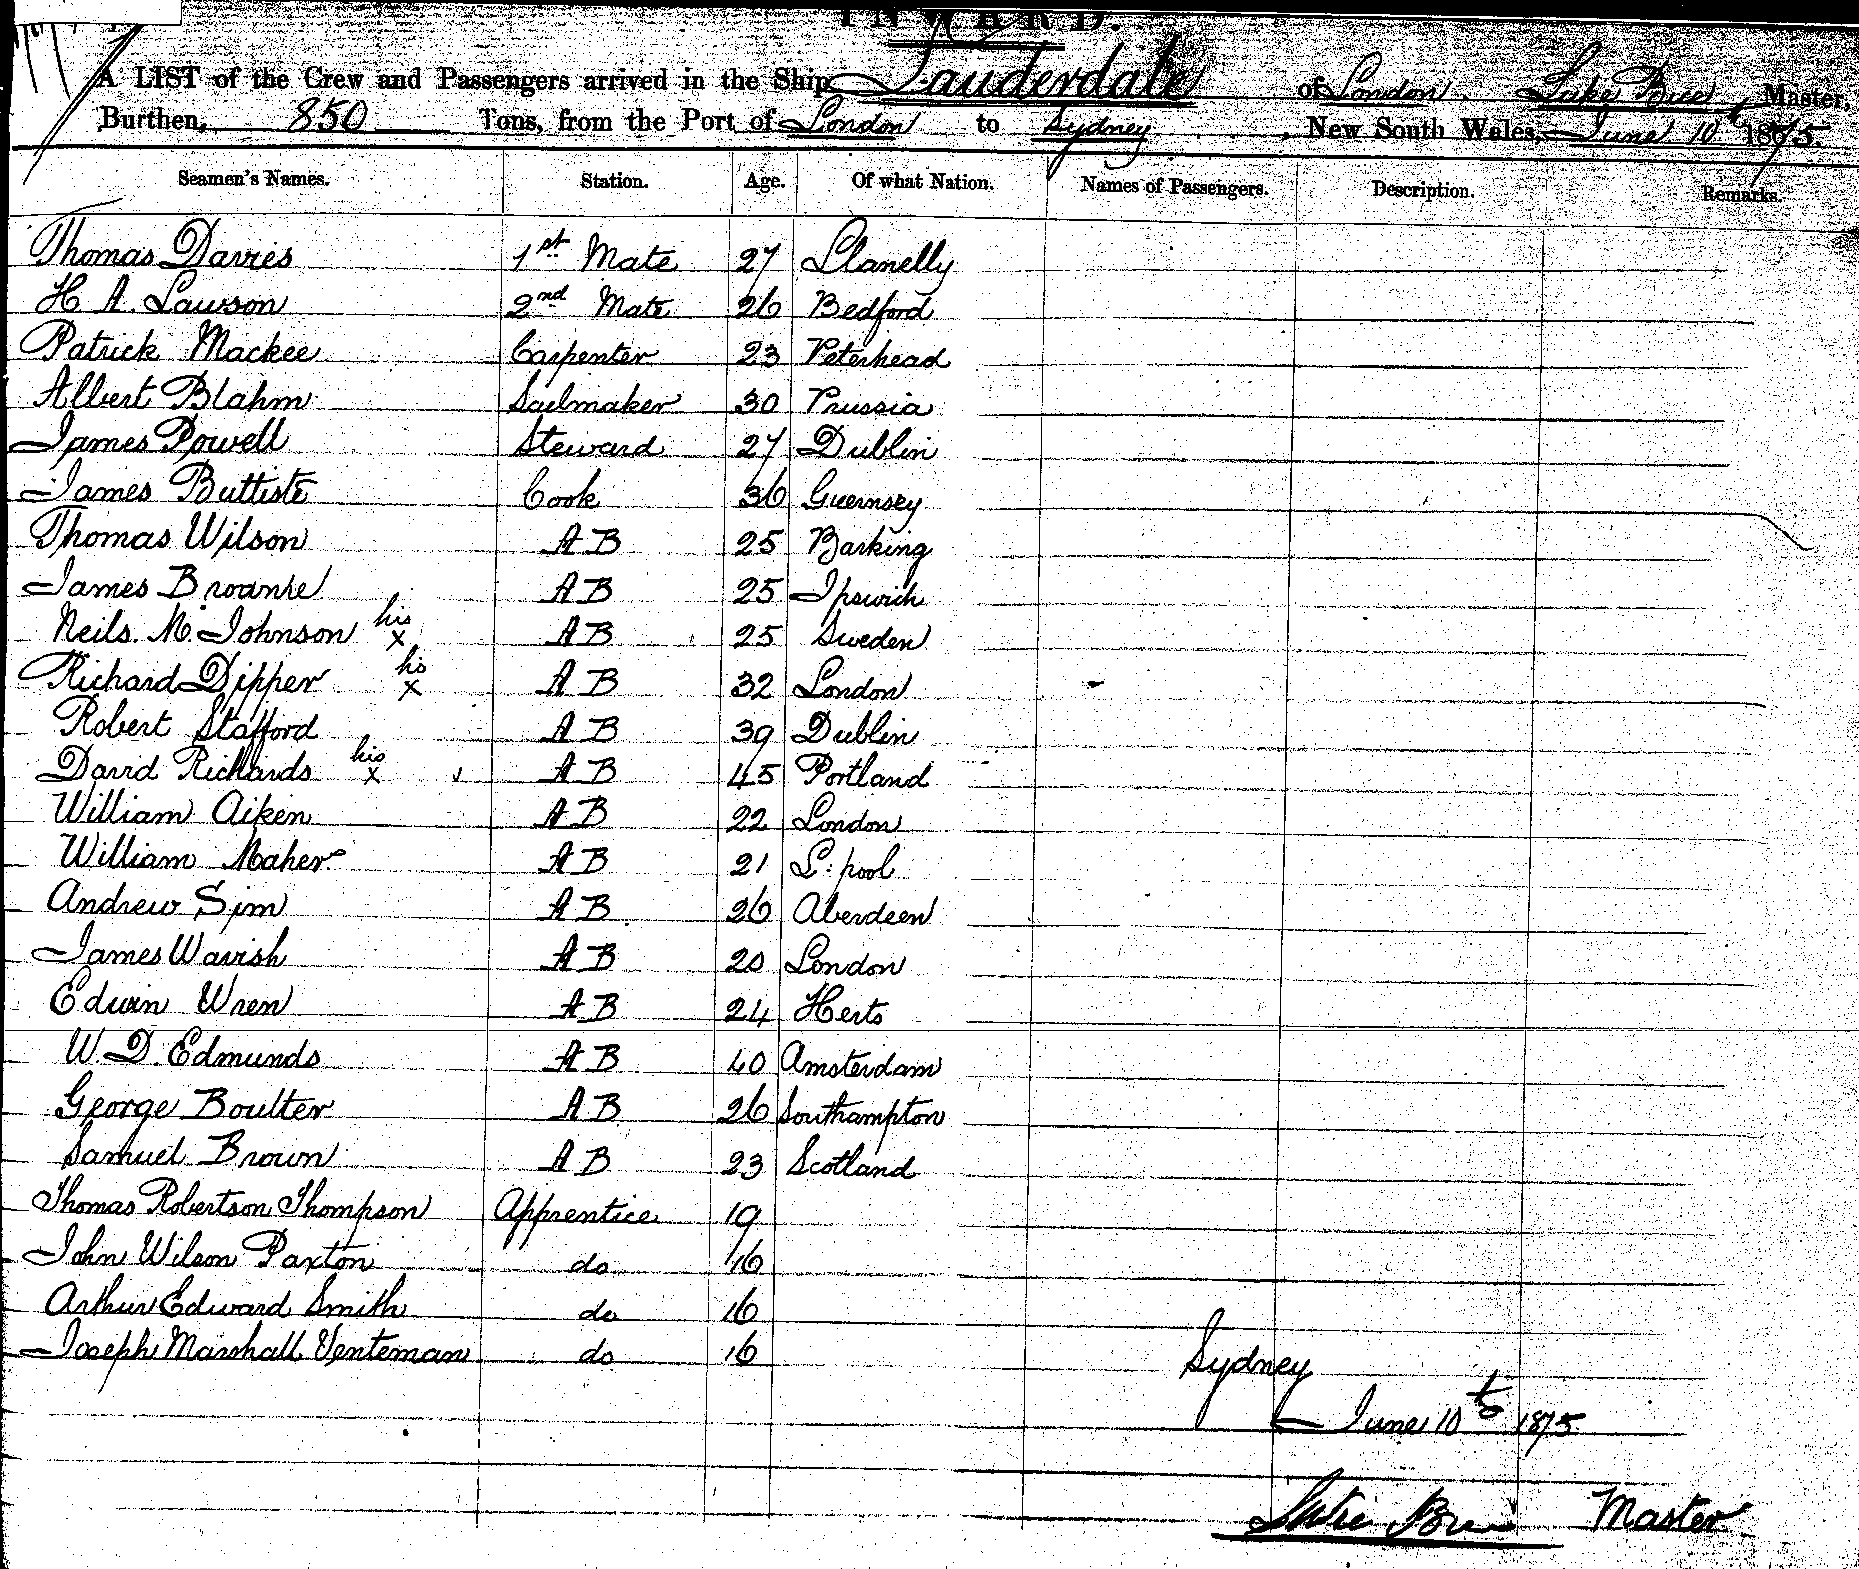 INWARD.
A LIST of the Crew and Passengers arrived in the Ship Lauderdale of London Luke Bree Master,
Burthen, 850 Tons, from the Port of London to Sydney, New South Wales, June 10th 1875.
Seamen's Names. Station. Age. Of what Nation. Names of Passengers. Description. Remarks.
Thomas Davies 1st Mate 27 Llanelly
H A. Lawson 2nd Mate 26 Bedford
Patrick Mackee Carpenter 23 Peterhead
Albert Blahm Sailmaker 30 Prussia
James Powell Steward 27 Dublin
James Buttiste Cook 36 Guernsey
Thomas Wilson AB 25 Barking
James Brownie AB 25 Ipswich
Neils. M. Johnson his x AB 25 Sweden
Richard Dipper his x AB 32 London
Robert Stafford AB 39 Dublin
David Richards his x AB 45 Portland
William Aiken AB 22 London
William Maher AB 21 L:pool
Andrew Sim AB 26 Aberdeen
James Warish AB 20 London
Edwin Wren AB 24 Herts
W. D. Edmunds AB 40 Amsterdam
George Boulter AB 26 Southampton
Samuel Brown AB 23 Scotland
Thomas Robertson Thompson Apprentice 19
John Wilson Paxton do 16
Arthur Edward Smith do 16
Joseph Marshall Venteman do 16
Sydney
June 10th 1875
Master